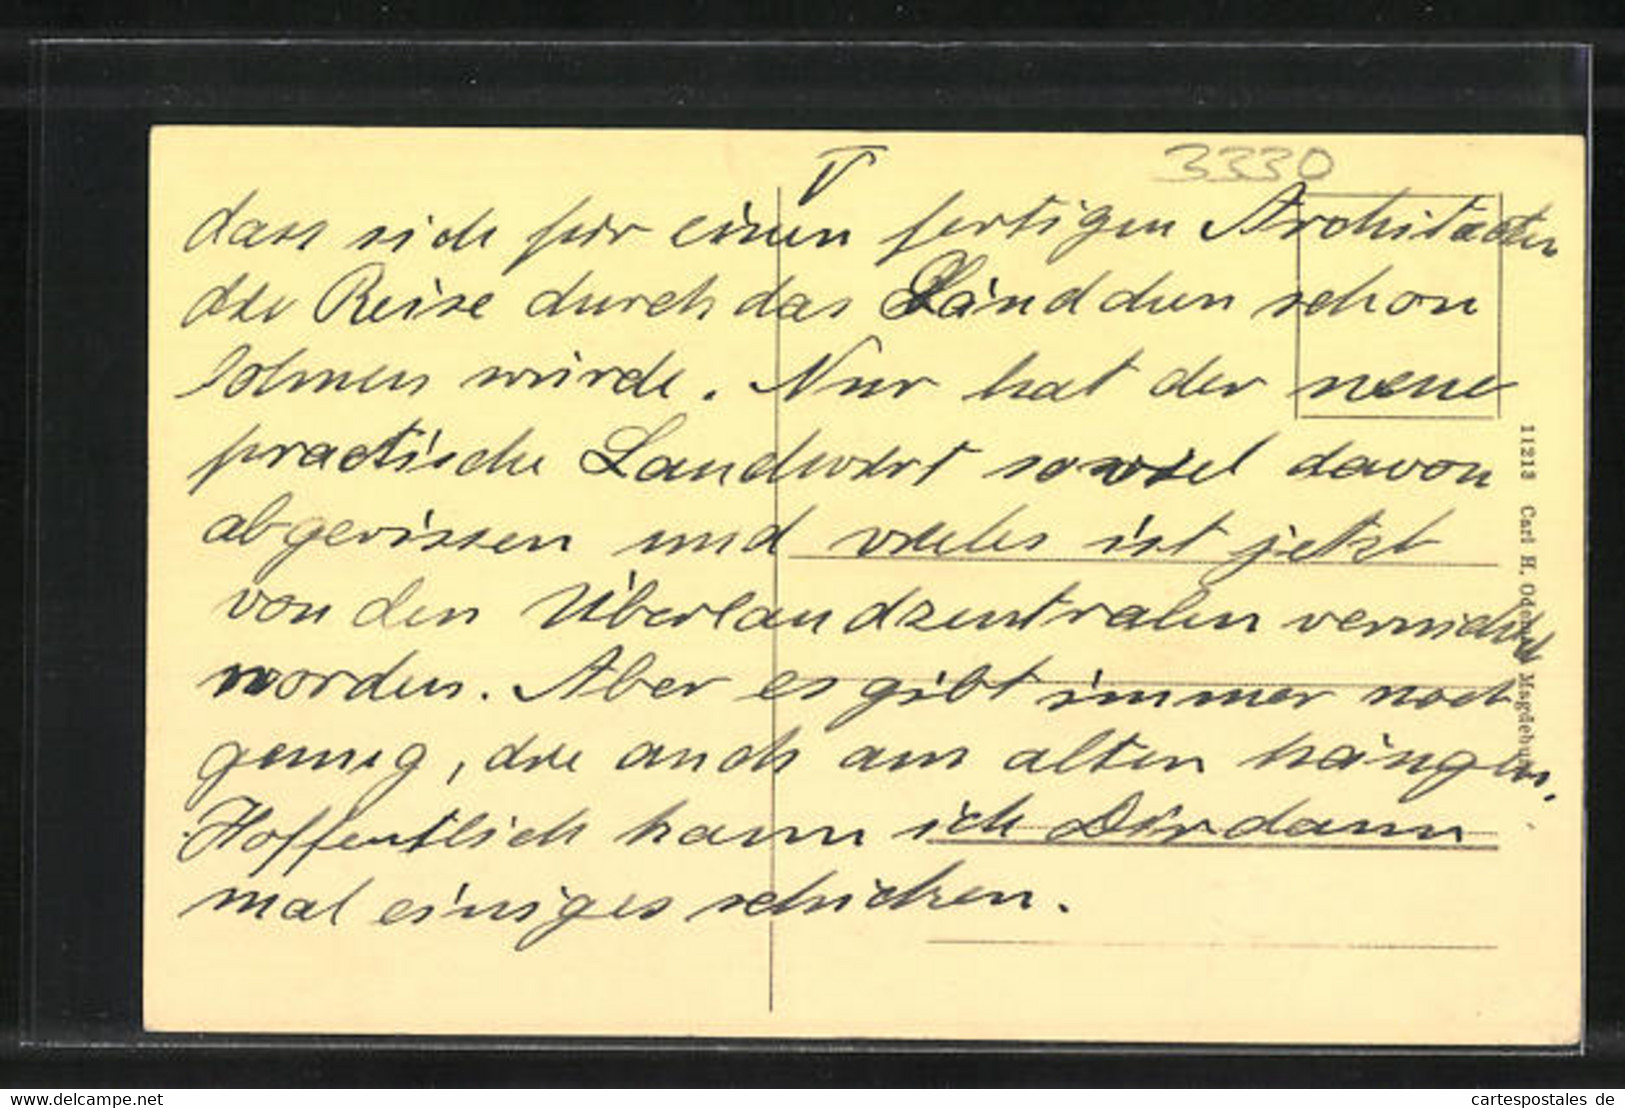 V
3330
dass sich für einen fertigen Architecten
die Reise durch das Ländchen schon
lohnen würde. Nur hat der neue
practische Landwirt soviel davon
abgerissen und vieles ist jetzt
von den Überlandzentralen vernichtet
worden. Aber es gibt immer noch
genug, die auch am alten hängen.
Hoffentlich kann ich Dir dann
mal einiges schicken.
11213 Carl H. Odemar, Magdeburg
www.cartespostales.eu
cartespostales de